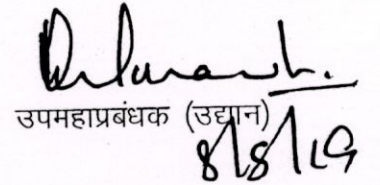 उपमहाप्रबंधक (उद्यान)
8/8/19